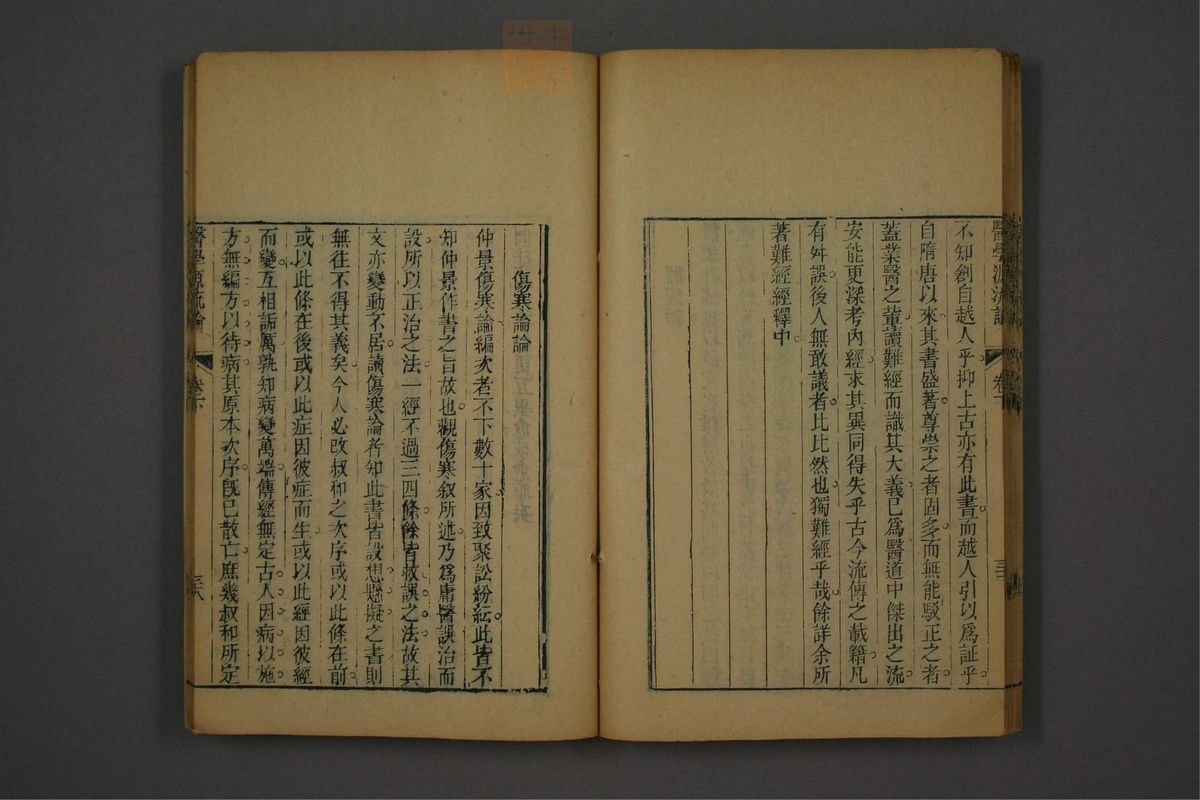 醫學源流論 卷下
不知創自越人乎抑上古亦有此書而越人引以爲証乎
自隋唐以來其書盛著尊崇之者固多而無能駁正之者
蓋業醫之輩讀難經而識其大義已爲醫道中傑出之流
安能更深考內經求其異同得失乎古今流傳之載籍凡
有舛誤後人無敢議者比比然也獨難經乎哉餘詳余所
著難經經釋中
傷寒論論
仲景傷寒論編次者不下數十家因致聚訟紛紜此皆不
知仲景作書之旨故也觀傷寒叙所述乃爲庸醫誤治而
設所以正治之法一經不過三四條餘皆救誤之法故其
文亦變動不居讀傷寒論者知此書皆設想懸擬之書則
無往不得其義矣今人必改叔和之次序或以此條在前
或以此條在後或以此症因彼症而生或以此經因彼經
而變互相詬厲孰知病變萬端傳經無定古人因病以施
方無編方以待病其原本次序旣已散亡庶幾叔和所定
醫學源流論 卷下 三六